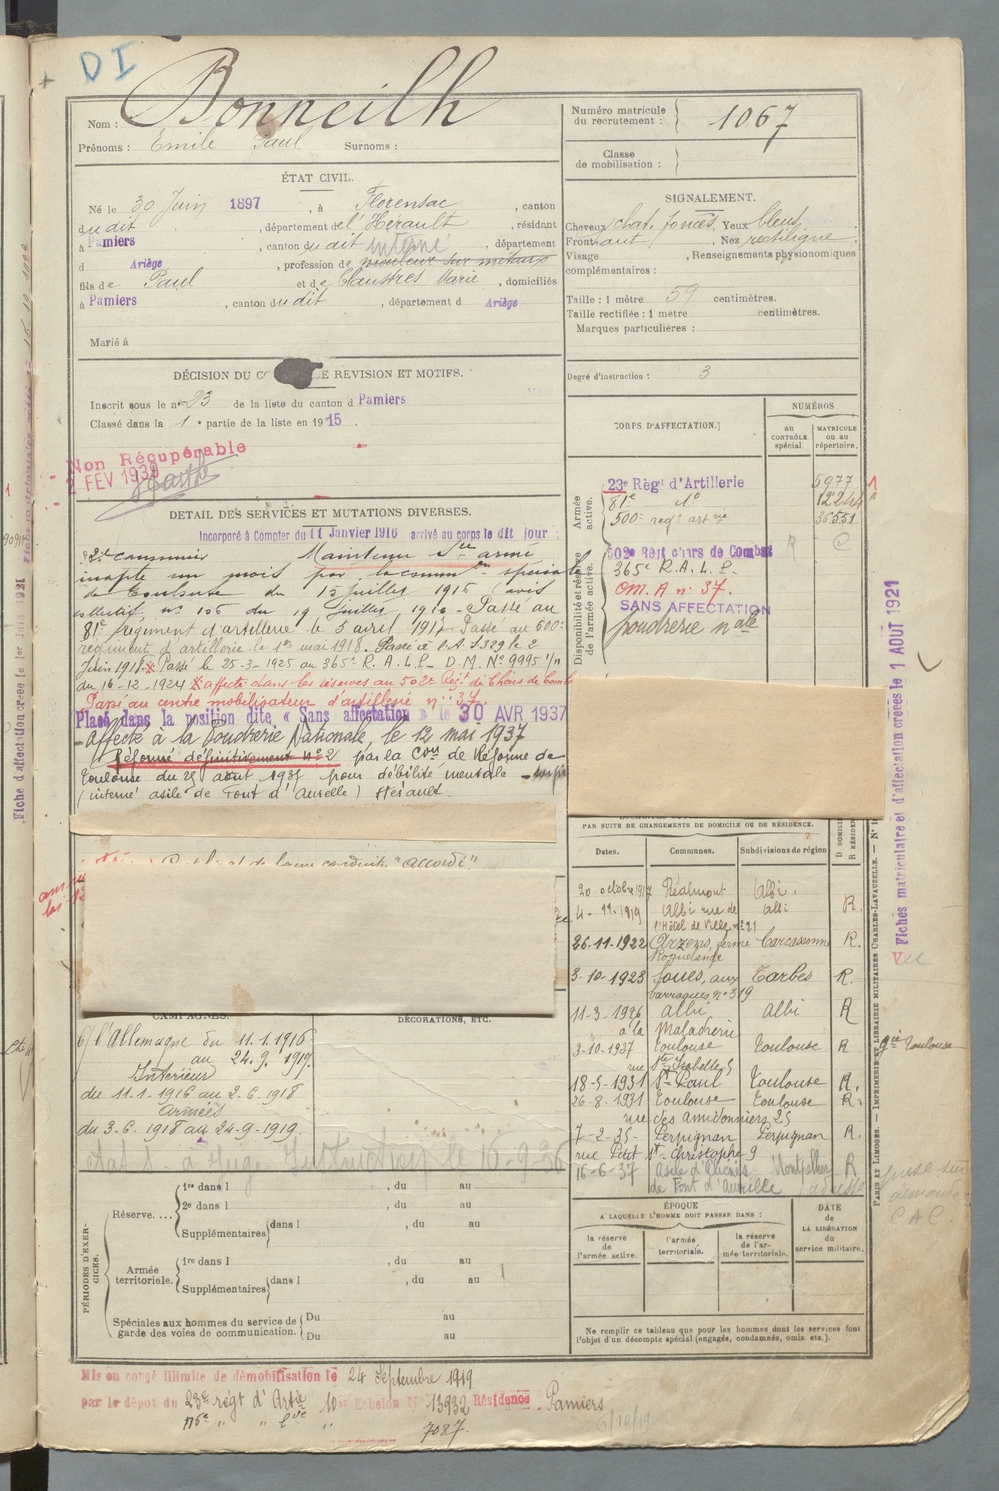 DI
Nom : Bonneilh
Prénoms : Emile Paul Surnoms :
Numéro matricule du recrutement : 1067
Classe de mobilisation :
ÉTAT CIVIL.
Né le 30 Juin 1897, à Florensac, canton
dudit, département de l'Hérault, résidant
à Pamiers, canton dudit interné, département
d Ariège, profession de
fils de Paul et de Claustres Marie, domiciliés
à Pamiers, canton dudit, département d Ariège
Marié à
SIGNALEMENT.
Cheveux chat. foncés, Yeux bleus
Front haut, Nez rectiligne
Visage , Renseignements physionomiques
complémentaires :
Taille : 1 mètre 59 centimètres.
Taille rectifiée : 1 mètre centimètres.
Marques particulières :
Degré d'instruction : 3
DÉCISION DU CO E REVISION ET MOTIFS.
Inscrit sous le n° 23 de la liste du canton d Pamiers
Classé dans la 1e partie de la liste en 1915.
Non Récupérable
2 FEV 1939
CORPS D'AFFECTATION.
NUMÉROS
AU CONTRÔLE SPÉCIAL.
MATRICULE OU AU RÉPERTOIRE.
Armée active.
23e Régt d'Artillerie 5977
81e do 12244
500e regt artie 36551
Disponibilité et réserve de l'armée active.
502e Régt chars de Combat
365e R.A.L.P.
O.M.A n° 37.
SANS AFFECTATION
poudrerie nale
DETAIL DES SERVICES ET MUTATIONS DIVERSES.
Incorporé à Compter du 11 Janvier 1916 arrivé au corps le dit jour
Maintenu Sce armé
inapte un mois par la common spéciale
de Toulouse du 15 juillet 1916 (avis
collectif n° 106 du 19 juillet 1916 - Passé au
81e régiment d'artillerie le 5 avril 1917 Passé au 500e
régiment d'artillerie le 1er mai 1918. Passé à l'A.S 329 le 2
Juin 1918 x Passé le 25-3-1925 au 365e R.A.L.P. D.M. N° 9995 1/11
du 16-12-1924 x affecté dans les réserves au 502e Régt de Chars de Combat
Passé au centre mobilisateur d'artillerie n° 37.
Placé dans la position dite « Sans affectation » le 30 AVR 1937
- Affecté à la Poudrerie Nationale le 12 mai 1937
Réformé définitivement n° 2 par la Con de Réforme de
Toulouse du 25 août 1938 pour débilité mentale -
(interné asile de Font d'Aurelle) Hérault.
de bonne conduite "accordé"
PAR SUITE DE CHANGEMENTS DE DOMICILE OU DE RÉSIDENCE.
Dates. Communes. Subdivisions de région D DOMICI R RÉSIDEN
20 octobre 1917 Réalmont Albi.
4-11-1919 Albi rue de l'Hôtel de Ville n° 21 Albi R.
26-11-1922 Arzens, ferme Roquelande Carcassonne R.
3-10-1923 Soues, aux barraques n° 319 Tarbes R.
11-3-1926 Albi à la Maladrerie Albi R
3-10-1937 Toulouse rue Ste Isabelle 5 Toulouse R
18-5-1931 St Paul Toulouse R.
26-8-1931 Toulouse rue des Amidonniers 25 Toulouse R.
7-2-35 - Perpignan rue Petit St-Christophe 9 Perpignan R.
16-6-37 Asile d'aliénés de Font d'Aurelle Montpellier R
CAMPAGNES.
DÉCORATIONS, ETC.
C/ l'Allemagne du 11.1.1916
au 24.9.1919.
Intérieur
du 11-1-1916 au 2-6-1918
Armées
du 3-6-1918 au 24-9-1919.
PÉRIODES D'EXERCICES.
Réserve....
1re dans l , du au
2e dans l , du au
Supplémentaires dans l , du au
Armée territoriale.
1re dans l , du au
Supplémentaires dans l , du au
Spéciales aux hommes du service de garde des voies de communication.
Du au
Du au
ÉPOQUE
A LAQUELLE L'HOMME DOIT PASSER DANS :
la réserve de l'armée active.
l'armée territoriale.
la réserve de l'armée territoriale.
DATE de LA LIBÉRATION du service militaire.
Ne remplir ce tableau que pour les hommes dont les services font
l'objet d'un décompte spécial (engagés, condamnés, omis etc.).
Mis en congé illimité de démobilisation le 24 Septembre 1919
par le dépot du 23e régt d'Artie 10e Echelon N° 13932 Résidence Pamiers
7087.
6/10/19
Fiches matriculaire et d'affectation créées le 1 AOUT 1921
Vu
PARIS ET LIMOGES. — IMPRIMERIE ET LIBRAIRIE MILITAIRES CHARLES-LAVAUZELLE. — N° 1
Toulouse
demande
C A C.